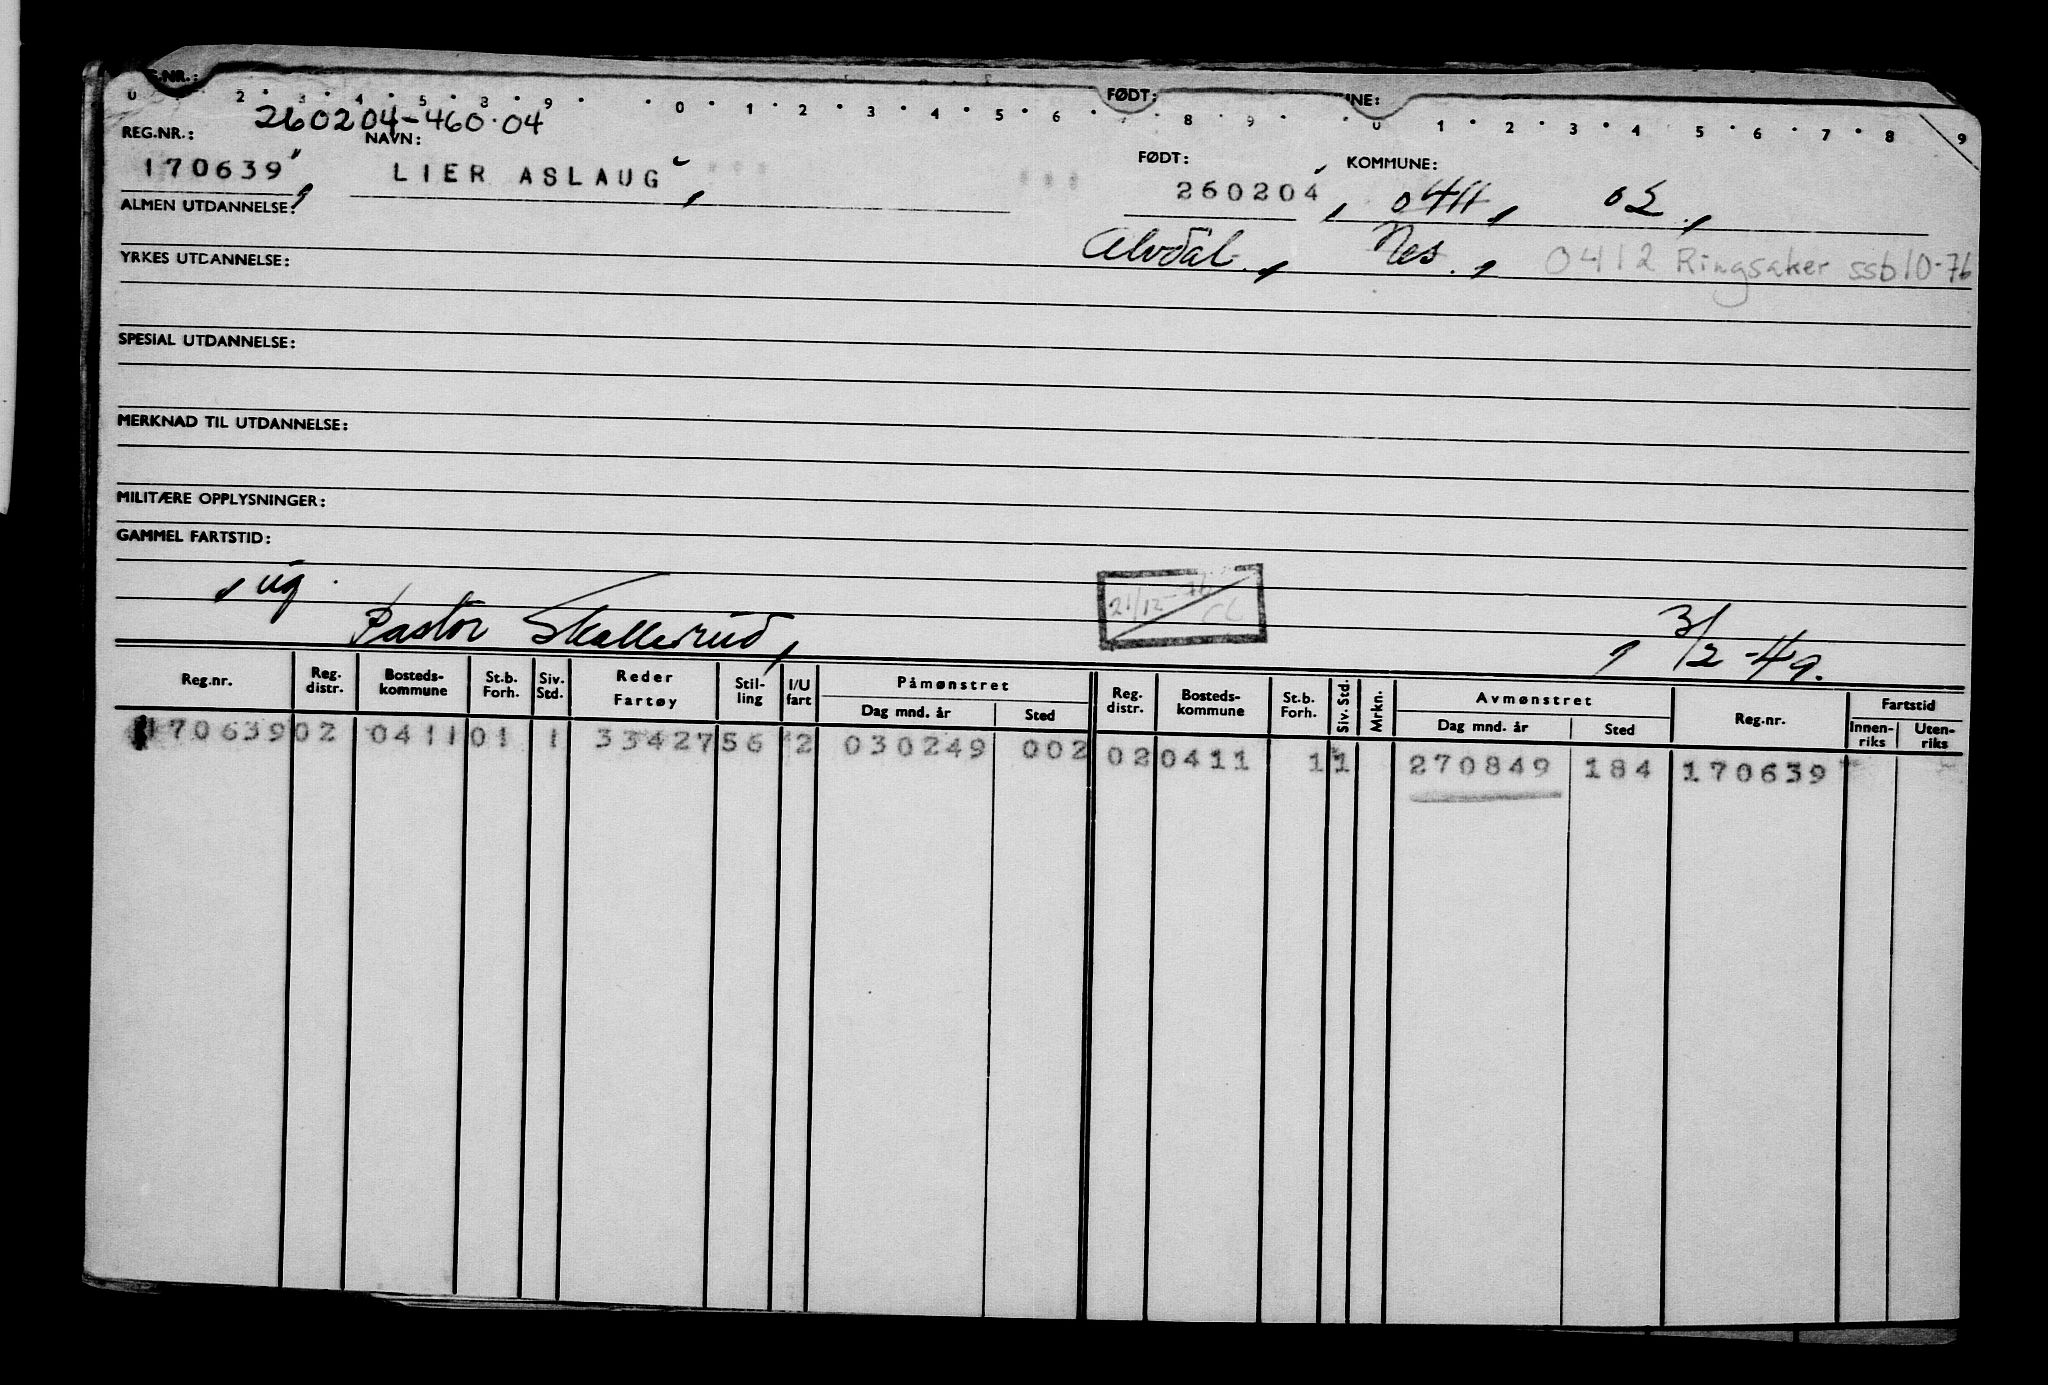 G.NR.:
FØDT:
NE:
0 2 • 3 • 4 • 5 • 8 • 9 • • 0 • 1 • 2 • 3 • 4 • 5 • 6 • 7 • 8 • 9 • • 0 1 • 2 • 3 • 4 5 • 6 • 7 • 8 9
260204-460.04
REG.NR.: NAVN: FØDT: KOMMUNE:
170639 LIER ASLAUG 260204 0411, 02,
ALMEN UTDANNELSE:
Alvdal, Nes, 0412 Ringsaker ssb10-76
YRKES UTDANNELSE:
SPESIAL UTDANNELSE:
MERKNAD TIL UTDANNELSE:
MILITÆRE OPPLYSNINGER:
GAMMEL FARTSTID:
, ug.
21/12-76
Pastor Skallerud, , 3/2-49.
Reg.nr. Reg. distr. Bosteds- kommune St.b. Forh. Siv. Std. Reder Fartøy Stil- ling I/U fart Påmønstret Dag mnd. år Sted Reg. distr. Bosteds- kommune St.b. Forh. Siv. Std. Mrkn. Avmønstret Dag mnd. år Sted Reg.nr. Fartstid Innen- riks Uten- riks
170639 02 0411 01 1 33427 56 2 030249 002 02 0411 1 1 270849 184 170639